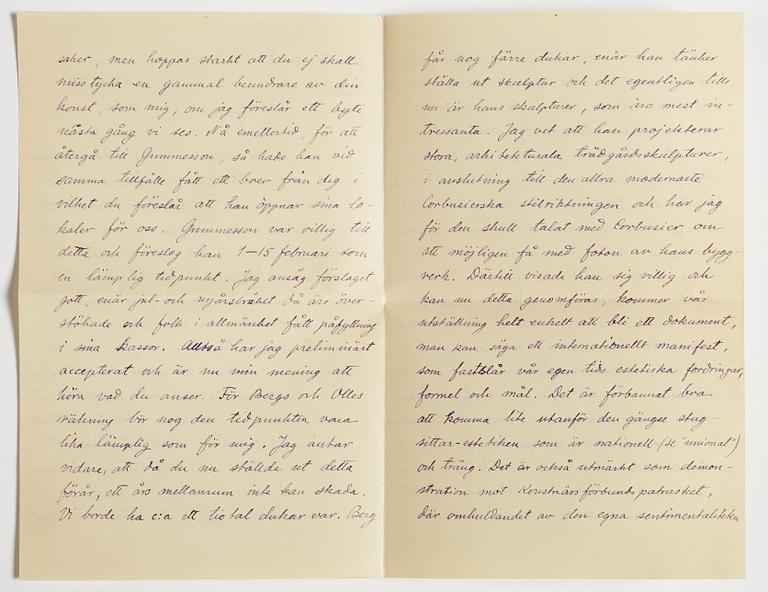 saker, men hoppas starkt att du ej skall
misstycka en gammal beundrare av din
konst, som mig, om jag föreslår ett byte
nästa gång vi ses. Nå emellertid, för att
återgå till Gummesson, så hade han vid
samma tillfälle fått ett brev från dig i
vilket du föreslår att han öppnar sina lo-
kaler för oss. Gummesson var villig till
detta och föreslog han 1–15 februari som
en lämplig tidpunkt. Jag ansåg förslaget
gott, enär jul- och nyårsbråket då äro över-
stökade och folk i allmänhet fått påfyllning
i sina kassor. Alltså har jag preliminärt
accepterat och är nu min mening att
höra vad du anser. För Bergs och Olles
räkning bör nog den tidpunkten vara
lika lämplig som för mig. Jag antar
vidare, att då du nu ställde ut detta
förår, ett års mellanrum inte kan skada.
Vi borde ha c:a ett tiotal dukar var. Berg
får nog färre dukar, enär han tänker
ställa ut skulptur och det egentligen tills
nu är hans skulpturer, som äro mest in-
tressanta. Jag vet att han projekterar
stora, arkitekturala trädgårdsskulpturer,
i anslutning till den allra modernaste
Corbusierska stilriktningen och har jag
för den skull talat med Corbusier om
att möjligen få med foton av hans bygg-
verk. Därtill visade han sig villig och
kan nu detta genomföras, kommer vår
utställning helt enkelt att bli ett dokument,
man kan säga ett internationellt manifest,
som fastslår vår egen tids estetiska fordringar,
formel och mål. Det är förbannat bra
att komma lite utanför den gängse stug-
sittar-estetiken som är nationell (se "unional")
och trång. Det är också utmärkt som demon-
stration mot Konstnärsförbunds patrasket,
där omhuldandet av den egna sentimentaliteten